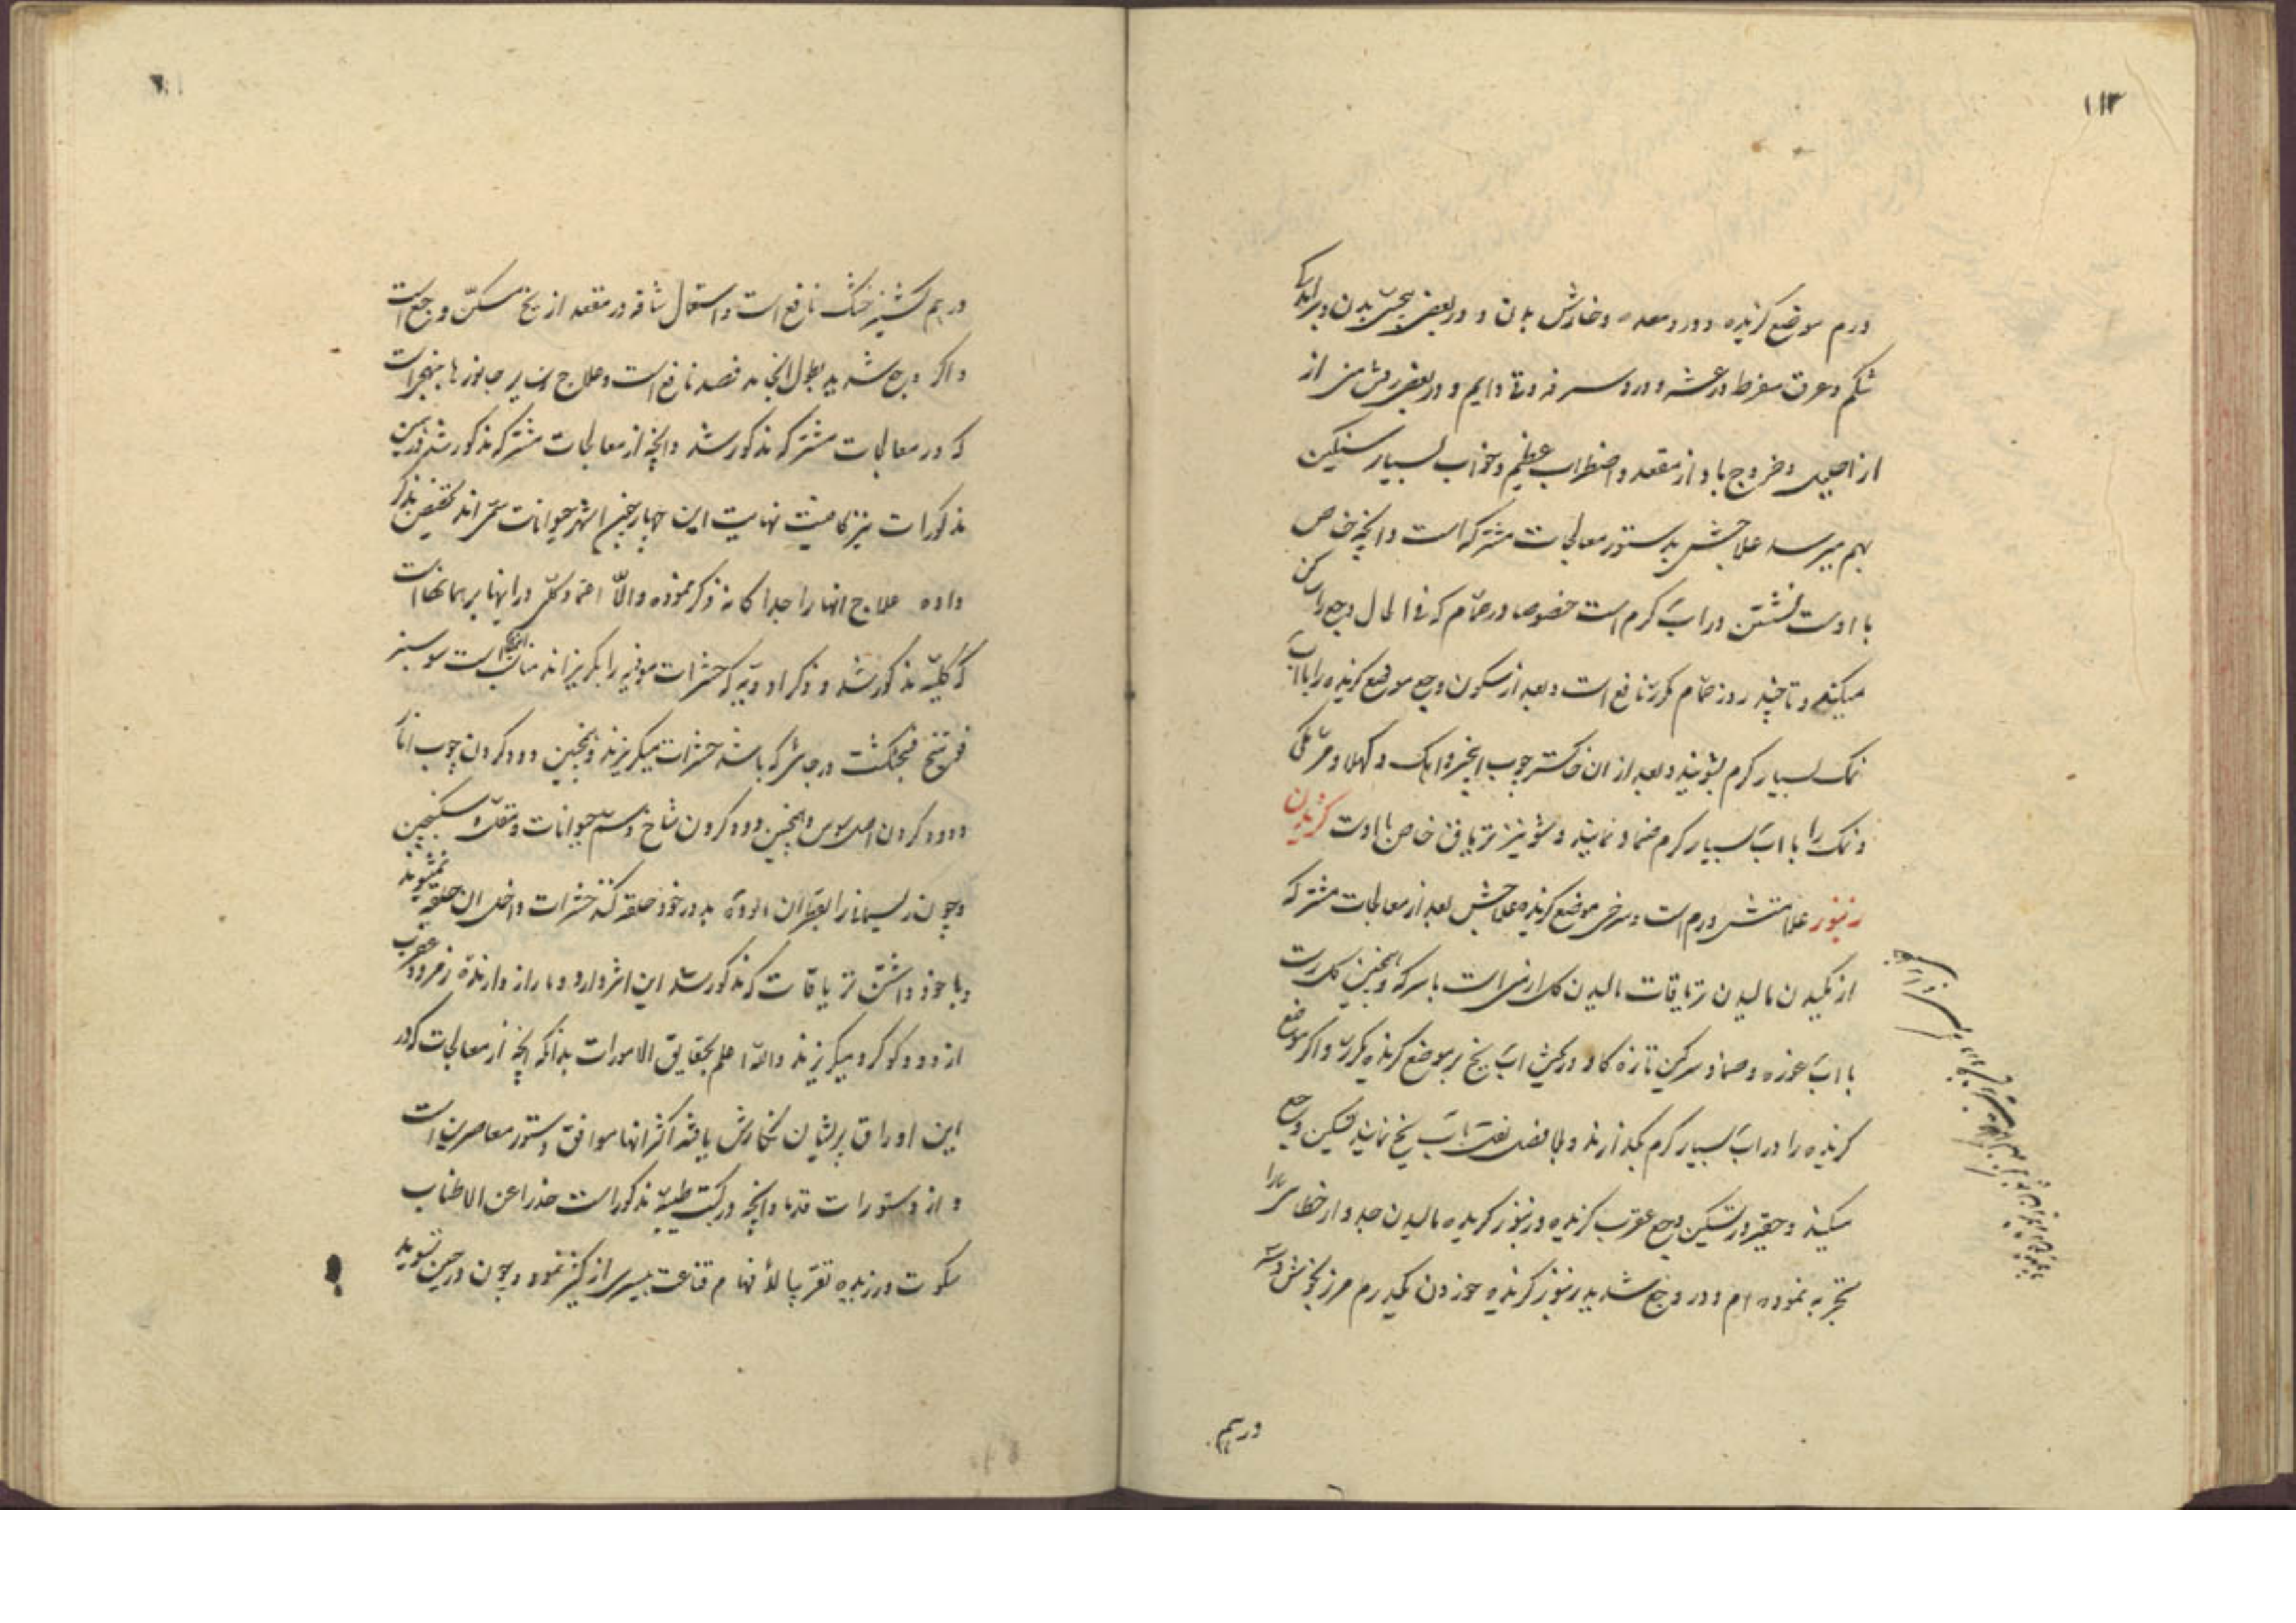 ١١٣
ورم موضع کزنده و درد معده و خارش بدن و در بعضی بیحسی بدن و برآمدکی
شکم و عرق مفرط و رعشه و درد سر و قی دایم و در بعضی ریش منی از
از احلیل و خروج باد از مقعد و اضطراب عظیم و خواب بسیار سنکین
بهم میرسد علاجش بدستور معالجات مشترکه است و انچه خاص
با اوست نشستن در اب کرم است خصوصا در حمام که فی الحال وجع را ساکن
میکند و تا چند روز حمام مکرر نافع است و بعد از سکون وجع موضع کزیده را با اب
نمک بسیار کرم بشویند و بعد از ان خاکستر چوب انجیر و اهک و
و نمک را با اب بسیار کرم ضماد نمایند و شونیز تریاق خاص با اوست کزیدن
زنبور علامتش ورم است و سرخی موضع کزیده علاجش بعد از معالجات مشترکه
از مکیدن مالیدن تریاقات مالیدن کل ارمنی است با سرکه و همچنین کل
با اب غوره و ضماد سرکین تازه کاو و اب یخ بر موضع کزیده مکرر و اکر موضع
کزیده را در اب بسیار کرم بکذارند و بلا فصل نقل باب یخ نمایند تسکین وجع
میکند و حقیر در تسکین وجع عقرب کزیده و زنبور کزیده مالیدن جدوار خطائی را
تجربه نموده ام و در وجع شدید زنبور کزیده خوردن یکدرم مرزنجوش و سه
درهم
درهم کشنیز خشک نافع است و استعمال شافه در مقعد از یخ مسکن وجع است
و اکر وجع شدید بطول انجامد فصد نافع است و علاج سایر جانورها بنهجی است
که در معالجات مشترکه مذکور شد و انچه از معالجات مشترکه مذکور شد درین
مذکورات نیز کافیست نهایت این چهار جنس اشهر حیوانات سمی اند تخصیص بذکر
داده علاج انها را جداکانه ذکر نموده و الا اعتماد کلی در اینها بر همانهاست
که کلیة مذکور شد و ذکر ادویه که حشرات موذیه را بکریزاند مناسب است سوسنبر
فوتنج فنجنکشت در جائی که باشد حشرات میکریزند و همچنین دود کردن چوب انار
و دود کردن اصل سوس و همچنین دود کردن شاخ و سم حیوانات و مقل و سکبینج
و چون ریسمانرا بقطران الوده بدور خود حلقه کنند حشرات داخل ان حلقه نمیشوند
و با خود داشتن تریاقات که مذکور شد این اثر دارد و مار از دارنده زمرد و عقرب
از دود کوکرد میکریزند والله اعلم بحقایق الامورات بدانکه انچه از معالجات که در
این اوراق پریشان نکارش یافته اکثر انها موافق دستور معاصرین است
و از دستورات قدما و انچه در کتب طبیه مذکور است حذرا عن الاطناب
سکوت ورزیده تقریبا للافهام قناعت بیسیری از کثیر نمود و چون در حین تسوید